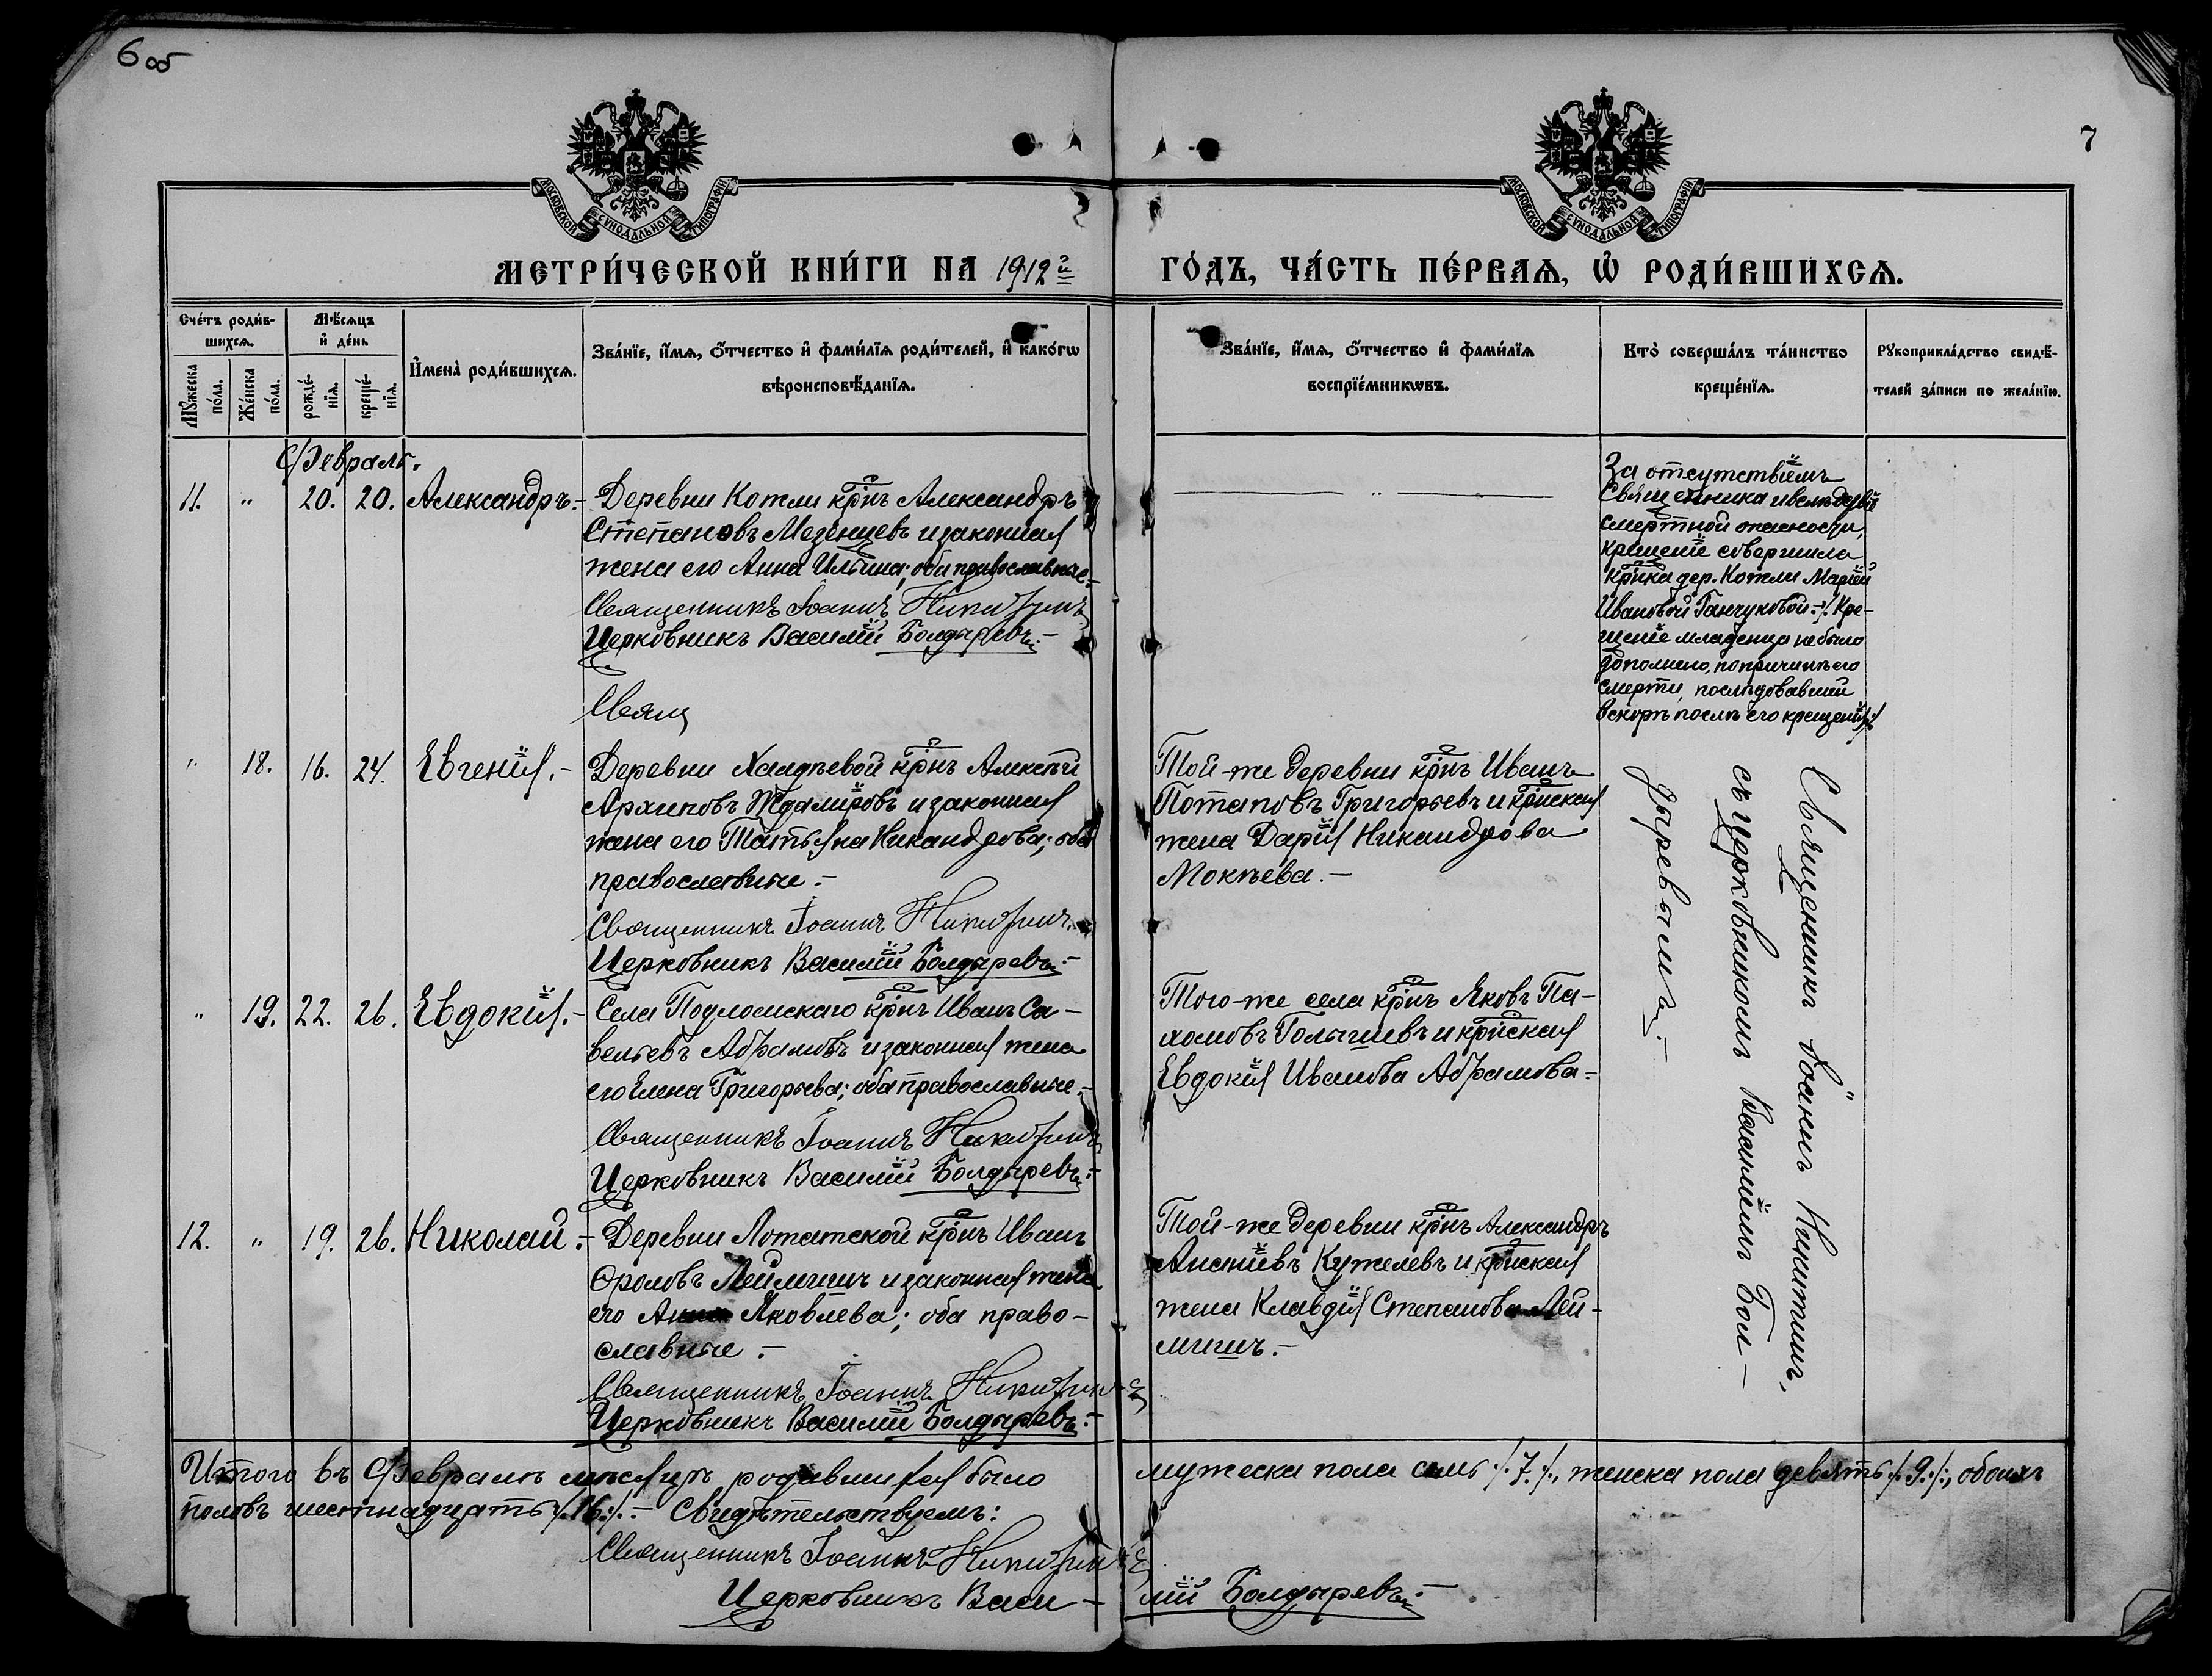 6 об
7
МОСКОВСКОЙ СУНОДАЛЬНОЙ ТИПОГРАФІИ
МОСКОВСКОЙ СУНОДАЛЬНОЙ ТИПОГРАФІИ
МЕТРИ́ЧЕСКОЙ КНИ́ГИ НА 1912й
ГО́ДЪ, ЧА́СТЬ ПЕ́РВАѦ, Ѡ҆ РОДИ́ВШИХСѦ.
Сче́тъ роди́в-
шихсѧ.
Мѣ́сѧцъ
и҆ де́нь
Мꙋ́жеска по́ла.
Же́нска по́ла.
рожде́-
нїѧ.
креще́-
нїѧ.
И҆мена̀ роди́вшихсѧ.
Зва́нїе, и҆́мѧ, ѻ҆́тчество и҆ фами́лїѧ роди́телей, и҆ како́гѡ
вѣроисповѣ́данїѧ.
Зва́нїе, и҆́мѧ, ѻ҆́тчество и҆ фами́лїѧ
воспрїе́мникѡвъ.
Кто̀ соверша́лъ та́инство
креще́нїѧ.
Рꙋкоприкла́дство свидѣ́-
телей за́писи по жела́нїю.
Февраль.
11. " 20. 20. Александръ.- Деревни Котли крнъ Александръ
Степановъ Мезенцевъ и законная
жена его Анна Ильина; оба православные.-
Священникъ Іоаннъ Никитинъ
Церковникъ Василій Болдыревъ.-
Свящ
"
За отсутствіемъ
Священника и вслѣдствіе
смертной опасности,
крещеніе совершила
крнка дер. Котли Маріей
Ивановой Ганчуковой.-/. Кре-
щеніе младенца не было
дополнено, по причинѣ его
смерти, послѣдовавшей
вскорѣ послѣ его крещенія./.
" 18. 16. 24. Евгенія.- Деревни Халдѣевой крнъ Алексѣй
Архиповъ и законная
жена его Татьяна Никандрова; оба
православные.-
Священникъ Іоаннъ Никитинъ.
Церковникъ Василій Болдыревъ.-
Той-же деревни крнъ Иванъ
Потаповъ Григорьевъ и крнская
жена Дарія Никандрова
Мокѣева.-
" 19. 22. 26. Евдокія.- Села Подломскаго крнъ Иванъ Са-
вельевъ Абрамовъ и законная жена
его Елена Григорьева; оба православные.-
Священникъ Іоаннъ Никитинъ
Церковникъ Василій Болдыревъ.-
Того-же села крнъ Яковъ Па-
хомовъ Голышевъ и крнская
Евдокія Иванова Абрамова.-
12. " 19. 26. Николай.- Деревни Потатской крнъ Иванъ
Фроловъ Леймишъ и законная жена
его Анна Яковлева; оба право-
славные.-
Священникъ Іоаннъ Никитинъ
Церковникъ Василій Болдыревъ.-
Той-же деревни крнъ Александръ
Ананіевъ Кужелевъ и крнская
жена Клавдія Степанова Лей-
мишъ.-
Священникъ Іоаннъ Никитинъ,
съ церковникомъ Василіемъ Бол-
дыревымъ.-
Итого въ Февралѣ мѣсяцѣ родившихся было мужеска пола семь /.7./., женска пола девять /.9./., обоихъ
половъ шестнадцать /.16./.- Свидѣтельствуемъ:
Священникъ Іоаннъ Никитинъ
Церковникъ Васи-лій Болдыревъ.-